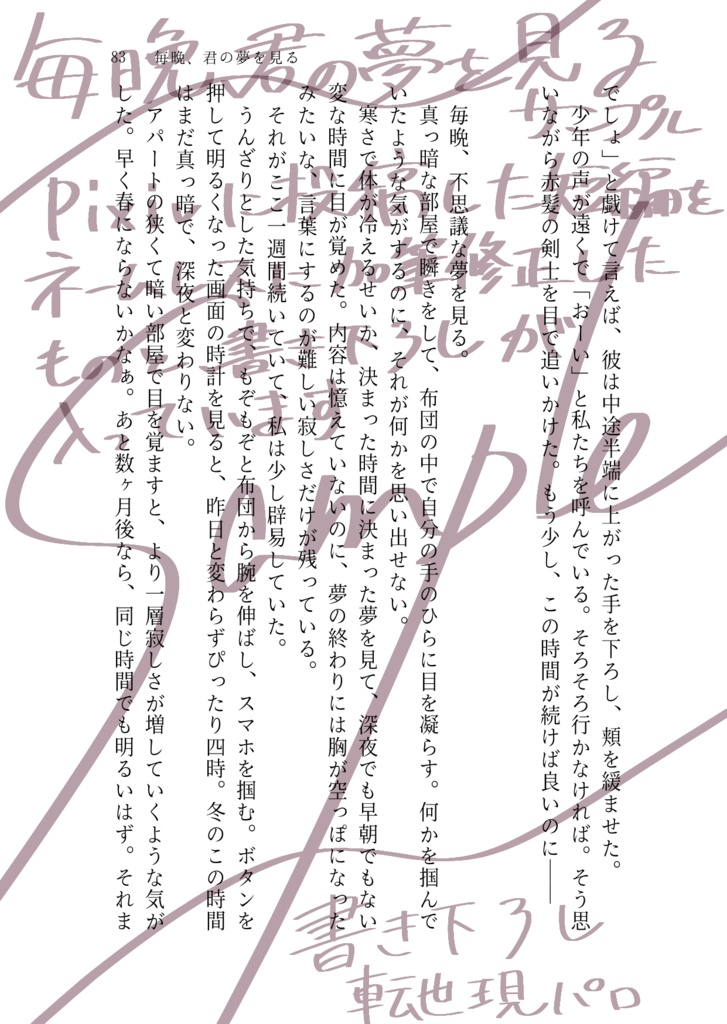 83 毎晩、君の夢を見る
でしょ」と戯けて言えば、彼は中途半端に上がった手を下ろし、頬を緩ませた。
少年の声が遠くで「おーい」と私たちを呼んでいる。そろそろ行かなければ。そう思
いながら赤髪の剣士を目で追いかけた。もう少し、この時間が続けば良いのに――
毎晩、不思議な夢を見る。
真っ暗な部屋で瞬きをして、布団の中で自分の手のひらに目を凝らす。何かを掴んで
いたような気がするのに、それが何かを思い出せない。
寒さで体が冷えるせいか、決まった時間に決まった夢を見て、深夜でも早朝でもない
変な時間に目が覚めた。内容は憶えていないのに、夢の終わりには胸が空っぽになった
みたいな、言葉にするのが難しい寂しさだけが残っている。
それがここ一週間続いていて、私は少し辟易していた。
うんざりとした気持ちで、もぞもぞと布団から腕を伸ばし、スマホを掴む。ボタンを
押して明るくなった画面の時計を見ると、昨日と変わらずぴったり四時。冬のこの時間
はまだ真っ暗で、深夜と変わりない。
アパートの狭くて暗い部屋で目を覚ますと、より一層寂しさが増していくような気が
した。早く春にならないかなぁ。あと数ヶ月後なら、同じ時間でも明るいはず。それま
毎晩君の夢を見る
サンプル
pixivに投稿した短編を
ネームレスに加筆修正した
ものと書き下ろしが
入っています
Sample
書き下ろし
転生現パロ